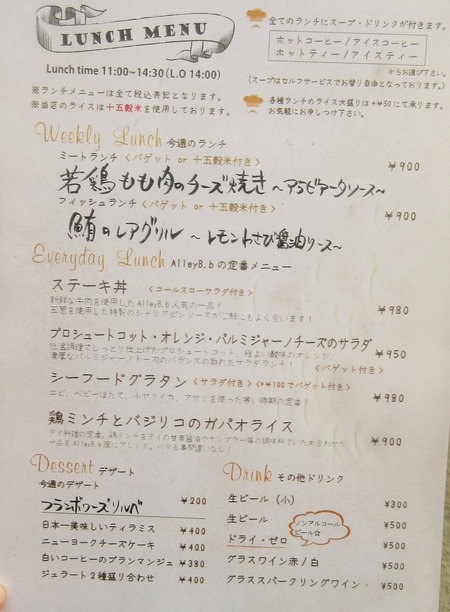 LUNCH MENU
Lunch time 11:00~14:30 (L.O 14:00)
※ランチメニューは全て税込表記となります。
※当店のライスは十五穀米を使用しております。
全てのランチにスープ・ドリンクが付きます。
ホットコーヒー/アイスコーヒー
ホットティー/アイスティー
からお選び下さい。
(スープはセルフサービスでお替り自由となっております。)
各種ランチのライス大盛りは+¥50にて承ります。
お気軽にお申しつけ下さい。
Weekly Lunch 今週のランチ
ミートランチ <バゲット or 十五穀米付き>
¥900
若鶏もも肉のチーズ焼き ~アラビアータソース~
フィッシュランチ <バゲット or 十五穀米付き>
¥900
鮪のレアグリル ~レモンわさび醤油ソース~
Everyday Lunch AlleyB.bの定番メニュー
ステーキ丼 <コールスローサラダ付き>
¥980
新鮮な牛肉を使用したAlleyB.b人気の一品!
玉葱を使用した特製のシャリアピンソースがご飯にもよく合います!
プロシュートコット・オレンジ・パルミジャーノチーズのサラダ
¥950
低温調理でしっとり仕上げたプロシュートコット、程よい酸味のオレンジ、
濃厚なパルミジャーノチーズのバランスの取れたサラダランチ! <バゲット付き>
シーフードグラタン <サラダ付き> <+¥100でバゲット付き>
¥980
エビ、ベビーほたて、小ヤリイカ、アサリを使った寒い時期の定番!
鶏ミンチとバジリコのガパオライス
¥900
タイ料理の定番。鶏ミンチをタイの甘草醤油やナンプラー等の調味料でいため合わせた
一品をAlleyB.b風にアレンジ。ハマる事間違いなし!
Dessert デザート
今週のデザート
フランボワーズソルベ ¥200
日本一美味しいティラミス ¥400
ニューヨークチーズケーキ ¥400
白いコーヒーのブランマンジェ ¥380
ジェラート2種盛り合わせ ¥400
Drink その他ドリンク
生ビール (小) ¥300
生ビール ¥500
ノンアルコール
ビール☆
ドライ・ゼロ ¥500
グラスワイン赤/白 ¥500
グラススパークリングワイン・ ¥500